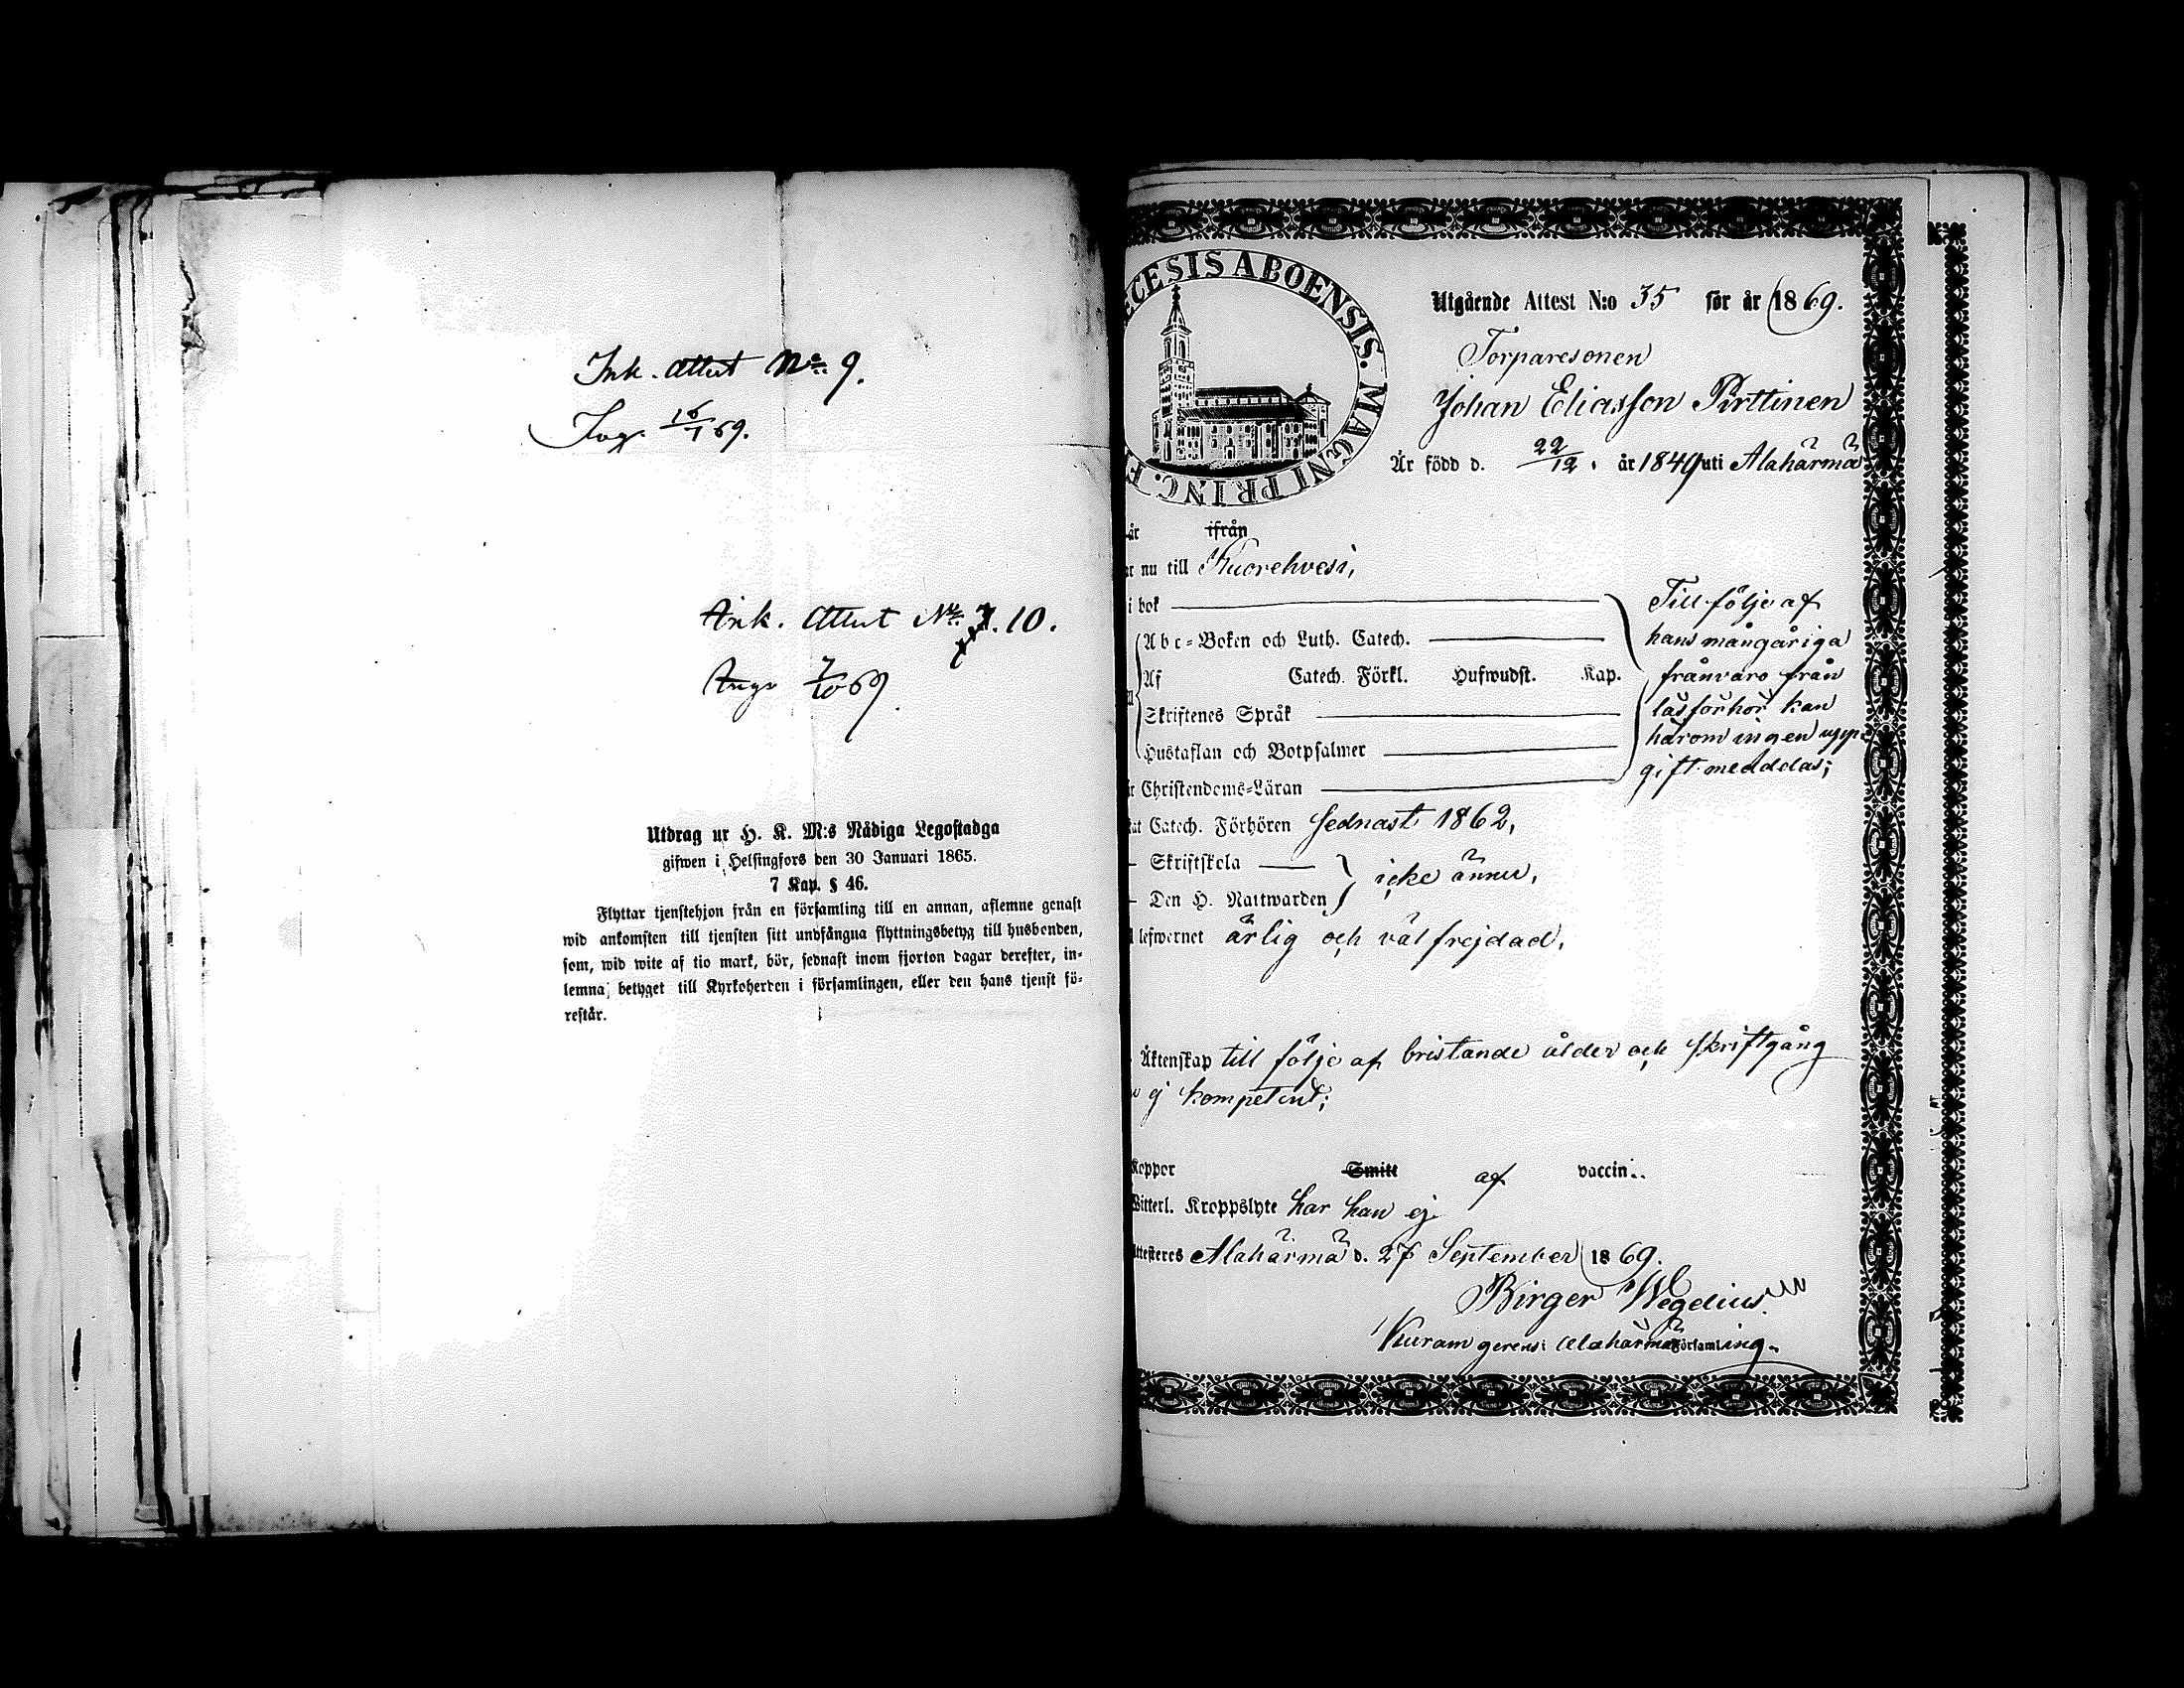 Ink. Attest No. 9.
Ing. 16/7 69.
Ank. Attest No. 10.
Angs 7/10 69.
Utdrag ur H. K. M:s Nådiga Legostadga
gifwen i Helsingfors den 30 Januari 1865.
7 Kap. § 46.
Flyttar tjenstehjon från en församling till en annan, aflemne genast
wid ankomsten till tjensten sitt undfångna flyttningsbetyg till husbonden,
som, wid wite af tio mark, bör, sednast inom fjorton dagar derefter, in-
lemna betyget till Kyrkoherden i församlingen, eller den hans tjenst fö-
restår.
ECESIS ABOENSIS. MAGNI PRINC. F
Utgående Attest N:o 35 för år 1869.
Torparesonen
Johan Eliasson Pirttinen
Är född d. 22/12. år 1849 uti Alahärmä
är ifrån
nu till Kuorehvesi,
i bok
Till följe af
Abc-Boken och Luth. Catech.
hans mångåriga
Af Catech. Förkl. Hufwudst. Kap.
frånvaro från
Skriftenes Språk
läsförhör kan
Hustaflan och Botpsalmer
härom ingen upp-
gift meddelas;
Christendoms-Läran
Catech. Förhören sednast 1862,
— Skriftskola
icke ännu,
— Den H. Nattwarden
lefwernet ärlig och väl frejdad,
Äktenskap till följe af bristande ålder och skriftgång
ej kompetent;
Koppor Smitt af vaccin..
Witterl. Kroppslyte har han ej
Attesteres Alahärmä d. 27 September 1869.
Birger Wegelius
Kuram gerens i Alahärmä Församling.